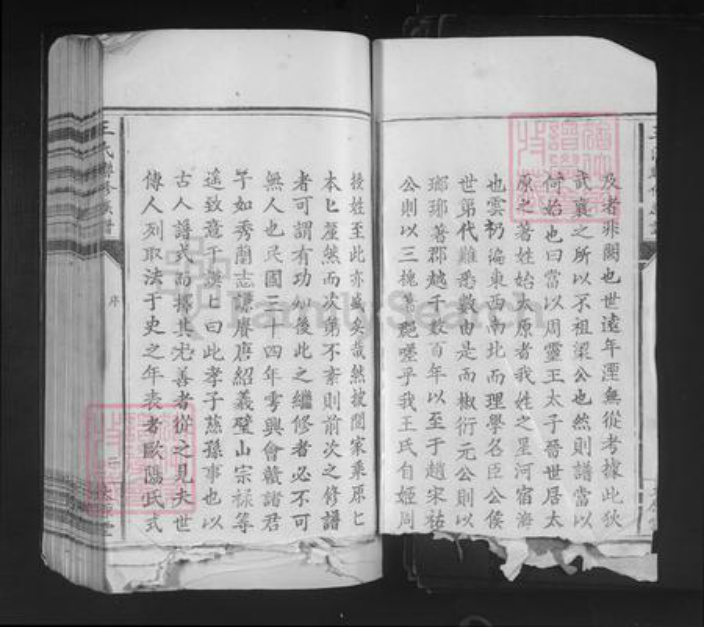 及者非闕也世遠年湮無從考據此狄
武襄之所以不祖梁公也然則譜當以
何始也曰當以周靈王太子晉世居太
原之著姓始太原者我姓之星河宿海
也雲礽徧東西南北而理學名臣公侯
世第代難悉數由是而椒衍元公則以
瑯琊著郡越千數百年以至于趙宋祐
公則以三槐蕃麗噫乎我王氏自姬周
授姓至此亦盛矣哉然披閱家乘原匕
本匕釐然而次第不紊則前次之修譜
者可謂有功如後此之繼修者必不可
無人也民國三十四年雩興會贛諸君
子如秀蘭志謙賡唐紹義璧山宗祿等
遙致意于漢上曰此孝子慈孫事也以
古人譜式而擇其尤善者從之見夫世
傳人列取法于史之年表者歐陽氏式
王氏聯修族譜
序
FamilySearch